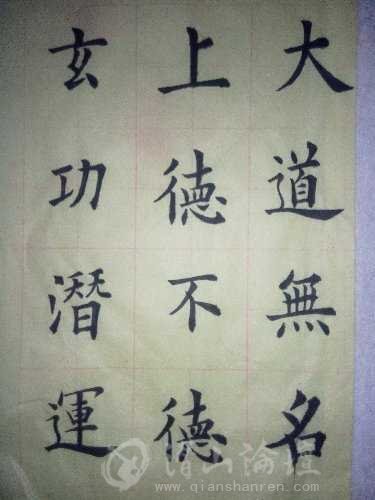 大道無名
上德不德
玄功潛運
潜山論壇
www.qianshanren.com